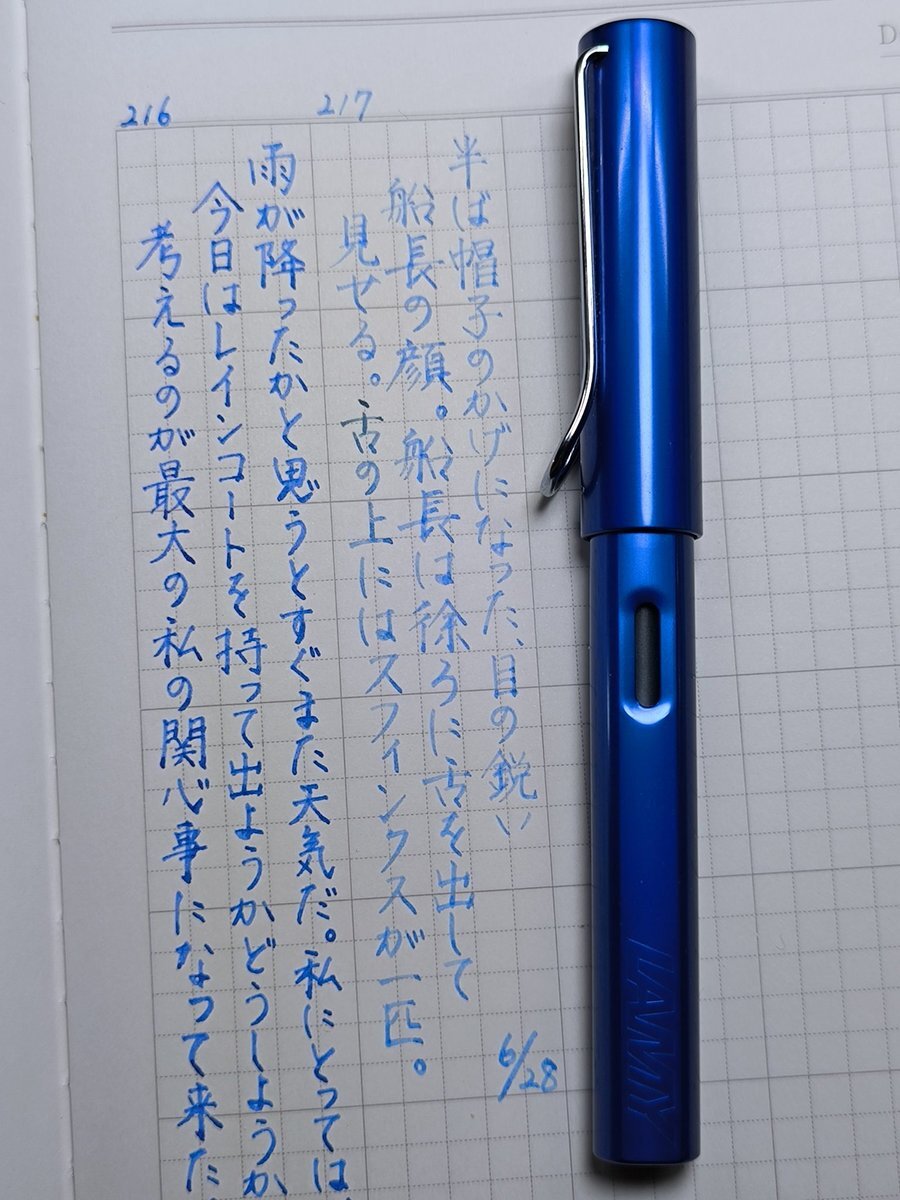 D
216
217
半ば帽子のかげになった、目の鋭い
船長の顔。船長は徐ろに舌を出して
見せる。舌の上にはスフィンクスが一匹。
6/28
雨が降ったかと思うとすぐまた天気だ。私にとっては、
今日はレインコートを持って出ようかどうしようか
考えるのが最大の私の関心事になって来た
LAMY